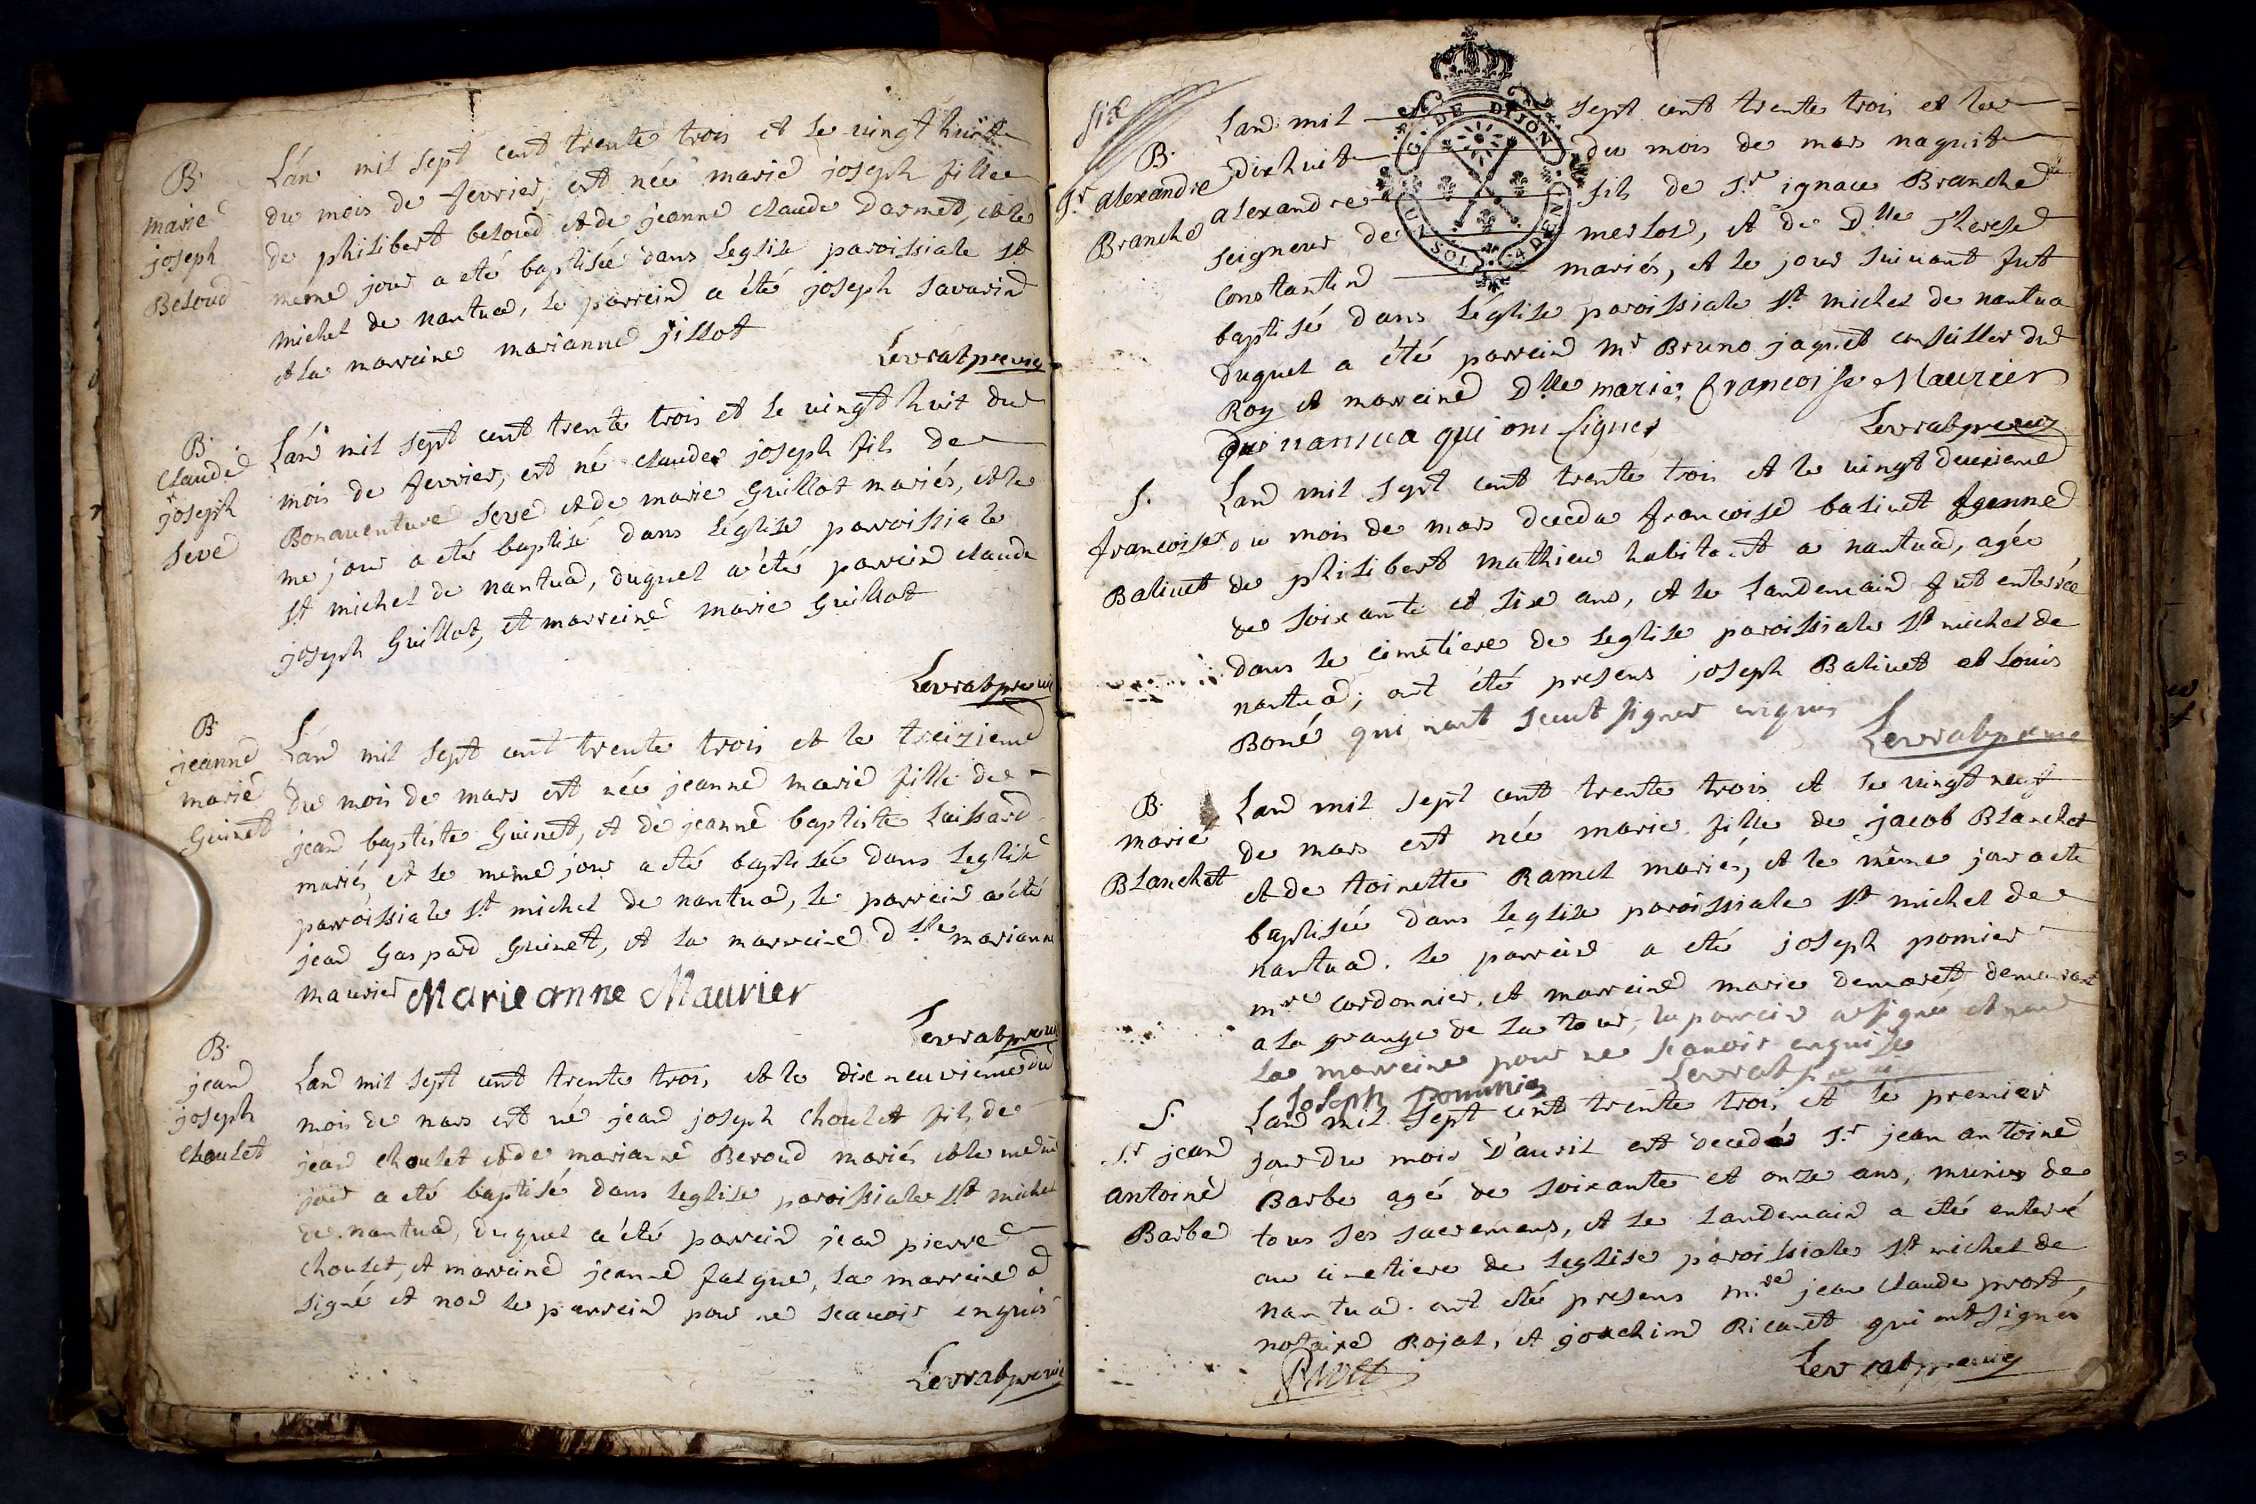 B.
marie
joseph
Beloud
Lan mil sept cent trente trois et le vingt huit
du mois de fevrier, est née marie joseph fille
de philibert beloud et de jeanne claude Darmet, et le
meme jour a eté baptisée dans leglise paroissiale st
michel de nantua, le parrein a été joseph savarin
et la marreine marianne jillot
Levrat
B.
claude
joseph
seve
Lan mil sept cent trente trois et le vingt huit du
mois de fevrier, est né claude joseph fils de
Bonaventure seve et de marie Guillot mariés, et le
me jour a eté baptisé dans léglise parroissiale
st michel de nantua, duquel a été parrein claude
joseph Guillot, et marreine marie Guillot
Levrat
B.
jeanne
marie
Guinet
Lan mil sept cent trente trois et le treizieme
du mois de mars est née jeanne marie fille de
jean baptiste Guinet, et de jeanne baptiste Luissard
mariés, et le meme jour a eté baptisée dans leglise
parroissiale st michel de nantua, le parrein a été
jean Gaspard Guinet, et la marreine dlle marianne
maurier Marie anne Maurier
Levrat
B.
jean
joseph
choulet
Lan mil sept cent trente trois et le dixneuvieme du
mois de mars est né jean joseph choulet fils de
jean choulet et de marianne Beroud mariés et le meme
jour a eté baptisé dans leglise paroissiale st michel
de nantua, duquel a été parrein jean pierre
choulet, et marreine jeanne falque, la marreine a
signé et non le parrein pour ne scavoir enquis
Levrat
G. DE DIJON
SOL 4 DENI
B.
Sr alexandre
Branche
Lan mil sept cent trente trois et le
dixhuit du mois de mars naquit
alexandre fils de Sr ignace Branche
seigneur de merlos, et de Dlle Therese
Constantin mariés, et le jour suivant fut
baptisé dans léglise paroissiale st michel de nantua
duquel a été parrein mr Bruno jaquet conseiller du
Roy et marreine Dlle marie francoise Maurier
de nantua qui ont signes
Levrat
S.
francoise
Balivet
Lan mil sept cent trente trois et le vingt deuxieme
du mois de mars deceda francoise balivet femme
de philibert mathieu habitant a nantua, agée
de soixante et six ans, et le landemain fut enterrée
dans le cimetiere de leglise paroissiale st michel de
nantua; ont été presens joseph Balivet et Louis
Boné qui nont sceut signer enquis
Levrat
B.
marie
Blanchet
Lan mil sept cent trente trois et le vingt neuf
de mars est née marie fille de jacob Blanchet
et de toinette Ramel mariés, et le même jour a eté
baptisée dans leglise paroissiale st michel de
nantua. le parrein a eté joseph pomier
mre cordonnier, et marreine marie demaret demeurant
a la grange de la tour, le parrein a signé et non
la marreine pour ne scavoir enquise
Levrat
Joseph
S.
Sr jean
antoine
Barbe
Lan mil sept cent trente trois et le premier
jour du mois d'avril est decedés Sr jean antoine
Barbe agé de soixante et onze ans, munis de
tous ses sacremens, et le landemain a eté enterré
au cimetiere de leglise paroissiale st michel de
nantua. ont eté presens mre jean claude prost
notaire Rojal, et joachim Ricaret qui ont signés
Levrat